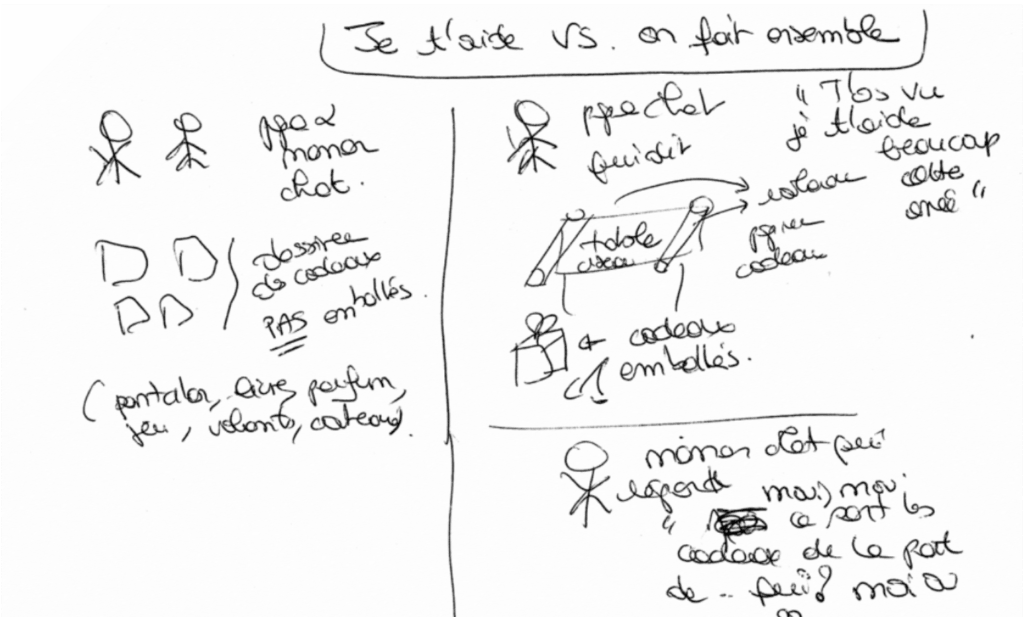 Je t'aide VS. on fait ensemble
papa &
maman
chat.
dessiner
de cadeaux
PAS emballés.
(pantalon, livre, parfum,
jeu, volants, cadeaux).
papa chat
qui dit
" T'as vu
je t'aide
beaucoup
cette
année "
rouleau
papier
cadeau
+ table
ciseau
+ cadeaux
emballés.
maman chat qui
regarde mais, moi.
" ce sont les
cadeaux de la part
de .. qui? moi ou